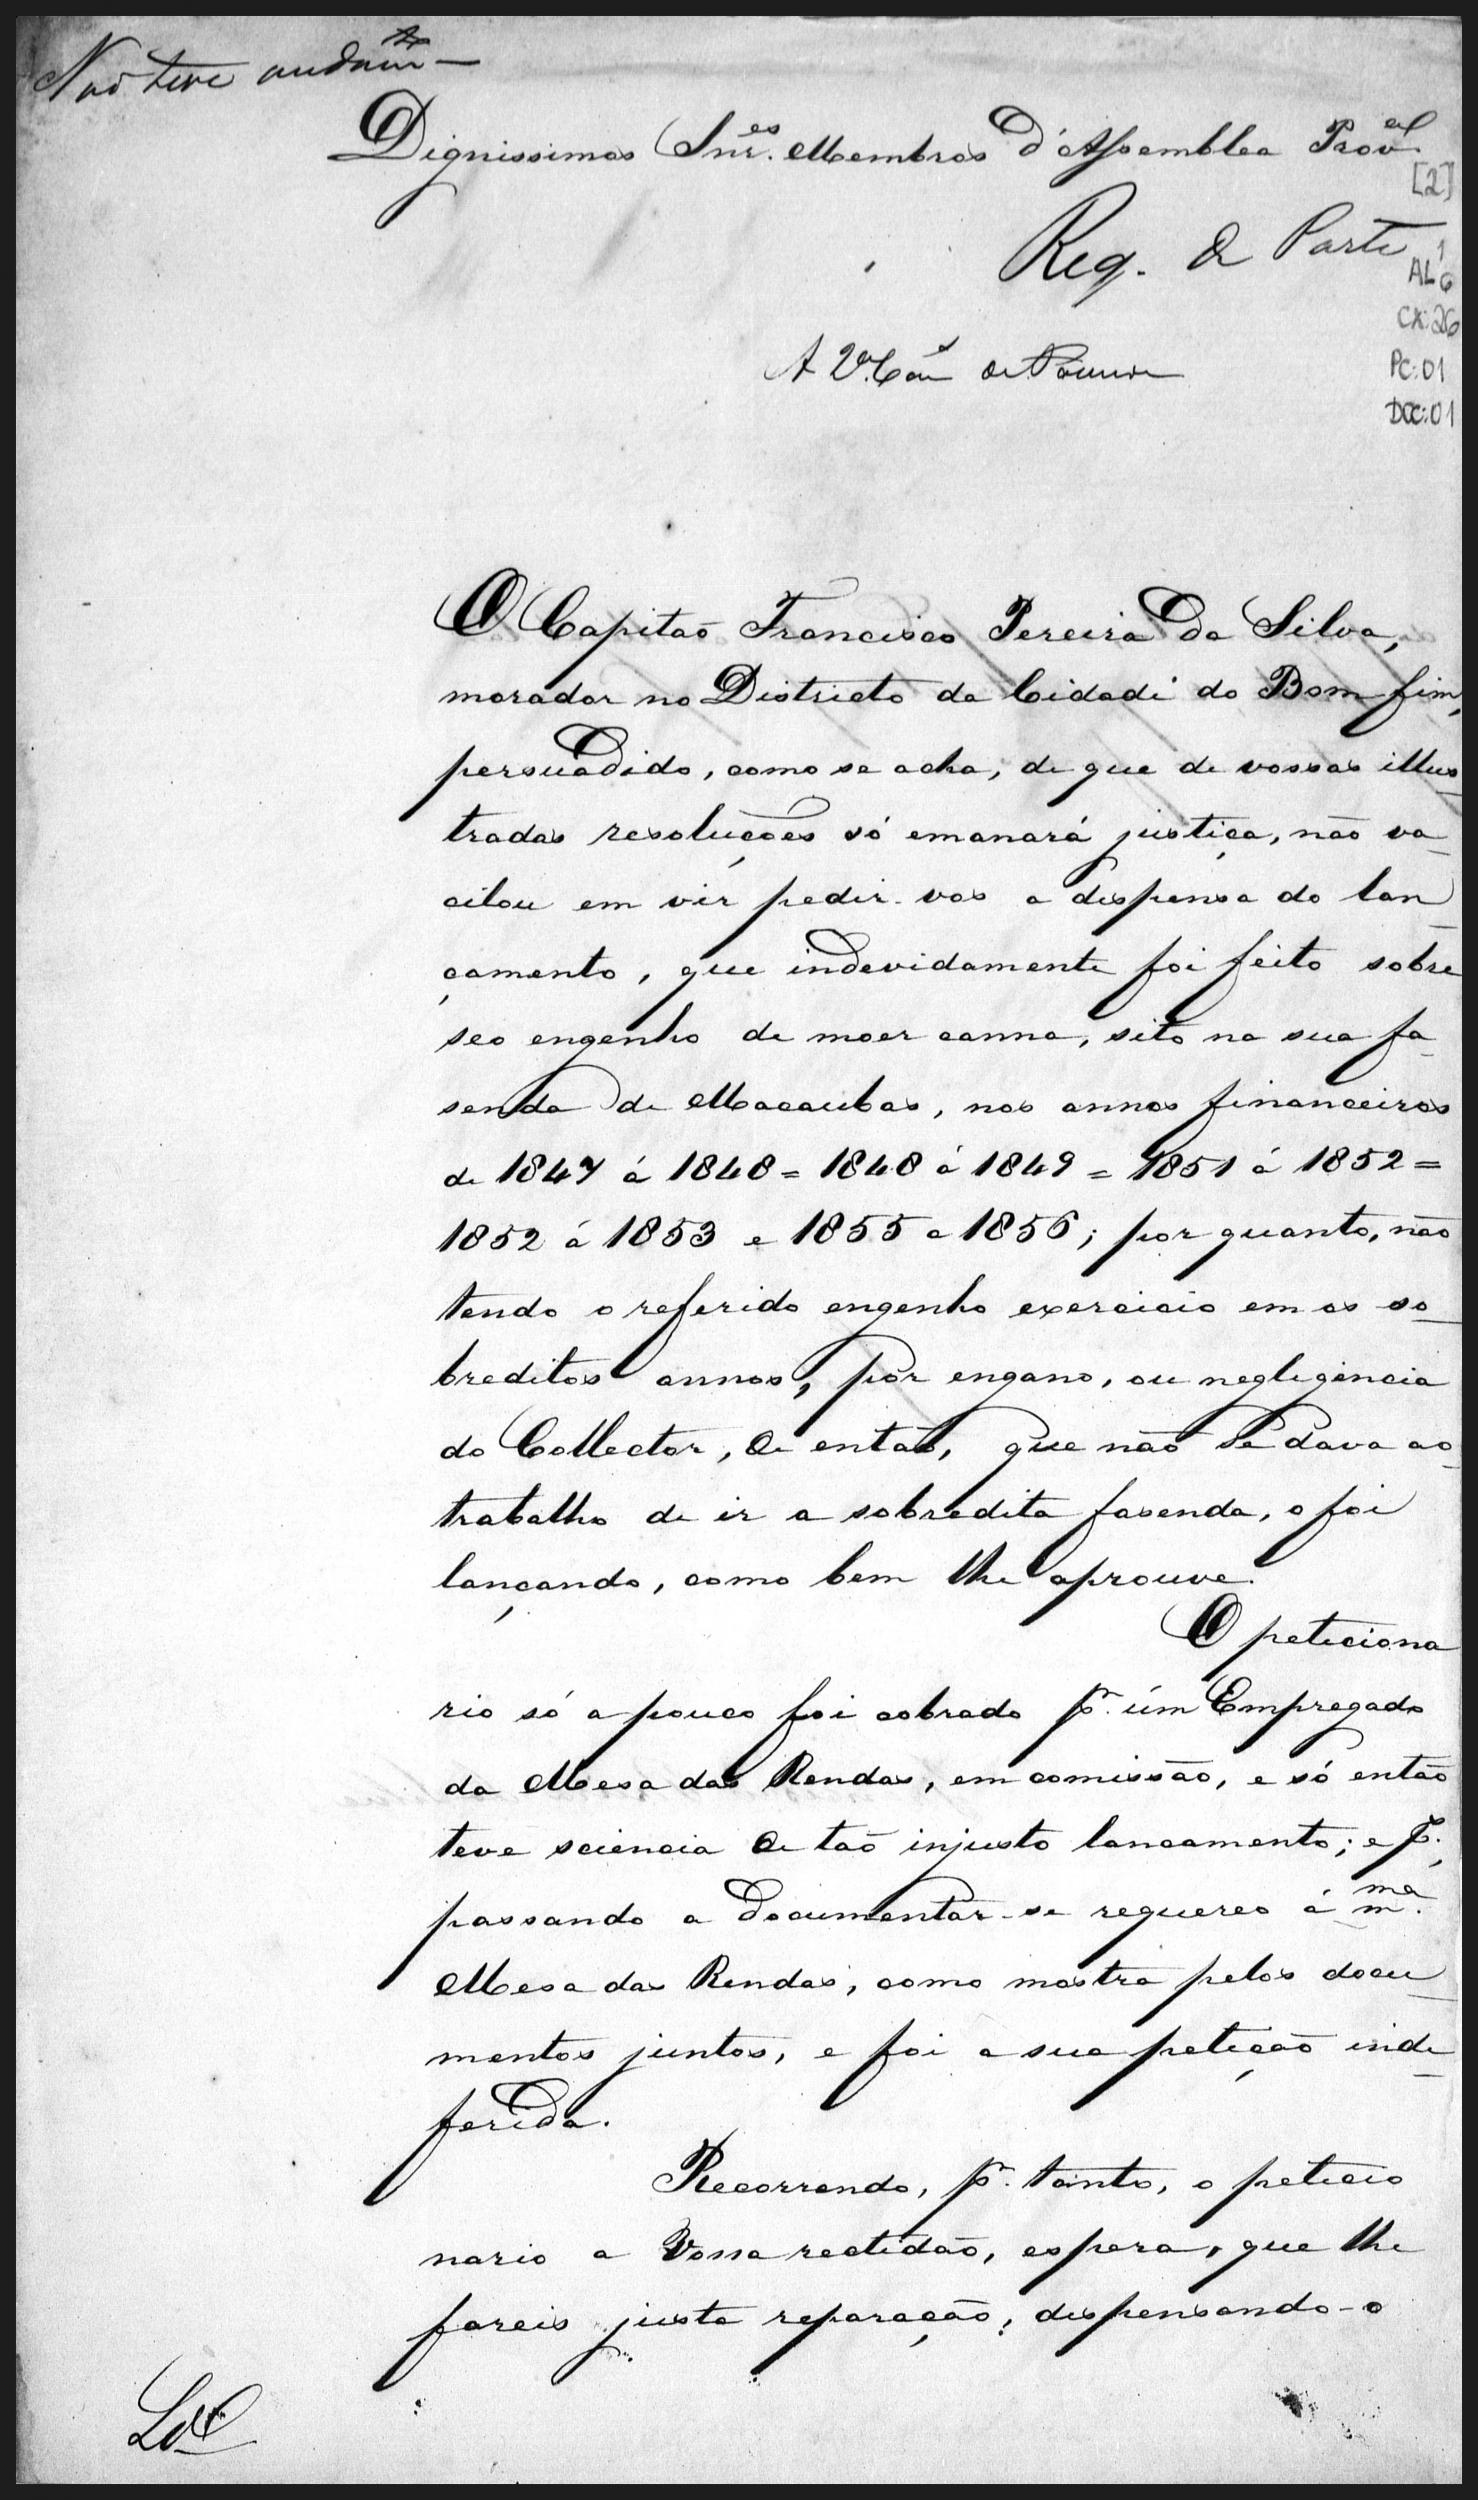 Não teve andam.to
Dignissimos Snr.es Membros d'Assemblea Prov.al
[2]
Req. de Parte
AL 1/6
CX: 26
A 2ª Com.
PC: 01
DOC: 01
O Capitaõ Francisco Pereira da Silva,
morador no Districto da Cidade do Bom fim,
persuadido, como se acha, de que de vossas illus
tradas resoluções só emanará justiça, não va
cilou em vir pedir-vos a dispensa do lan
çamento, que indevidamente foi feito sobre
seo engenho de moer canna, sito na sua fa
senda de Macaubas, nos annos financeiros
de 1847 á 1848 = 1848 á 1849 = 1851 á 1852 =
1852 á 1853 e 1855 a 1856; por quanto, não
tendo o referido engenho exercicio em os so
breditos annos, por engano, ou negligencia
do Collector, de entaõ, que não se dava ao
trabalho de ir a sobredita fasenda, o foi
lançando, como bem lhe aprouve.
O peticiona
rio só a pouco foi cobrado p.r úm Empregado
da Mesa das Rendas, em comissão, e só então
teve sciencia de taõ injusto lancamento; e p.r
passando a documentar-se requereo á m.ma
Mesa das Rendas, como mostra pelos docu
mentos juntos, e foi a sua petição inde
ferida.
Recorrendo, p.r tanto, o peticio
nario a Vossa rectidão, espera, que lhe
fareis justa reparação, dispensando-o